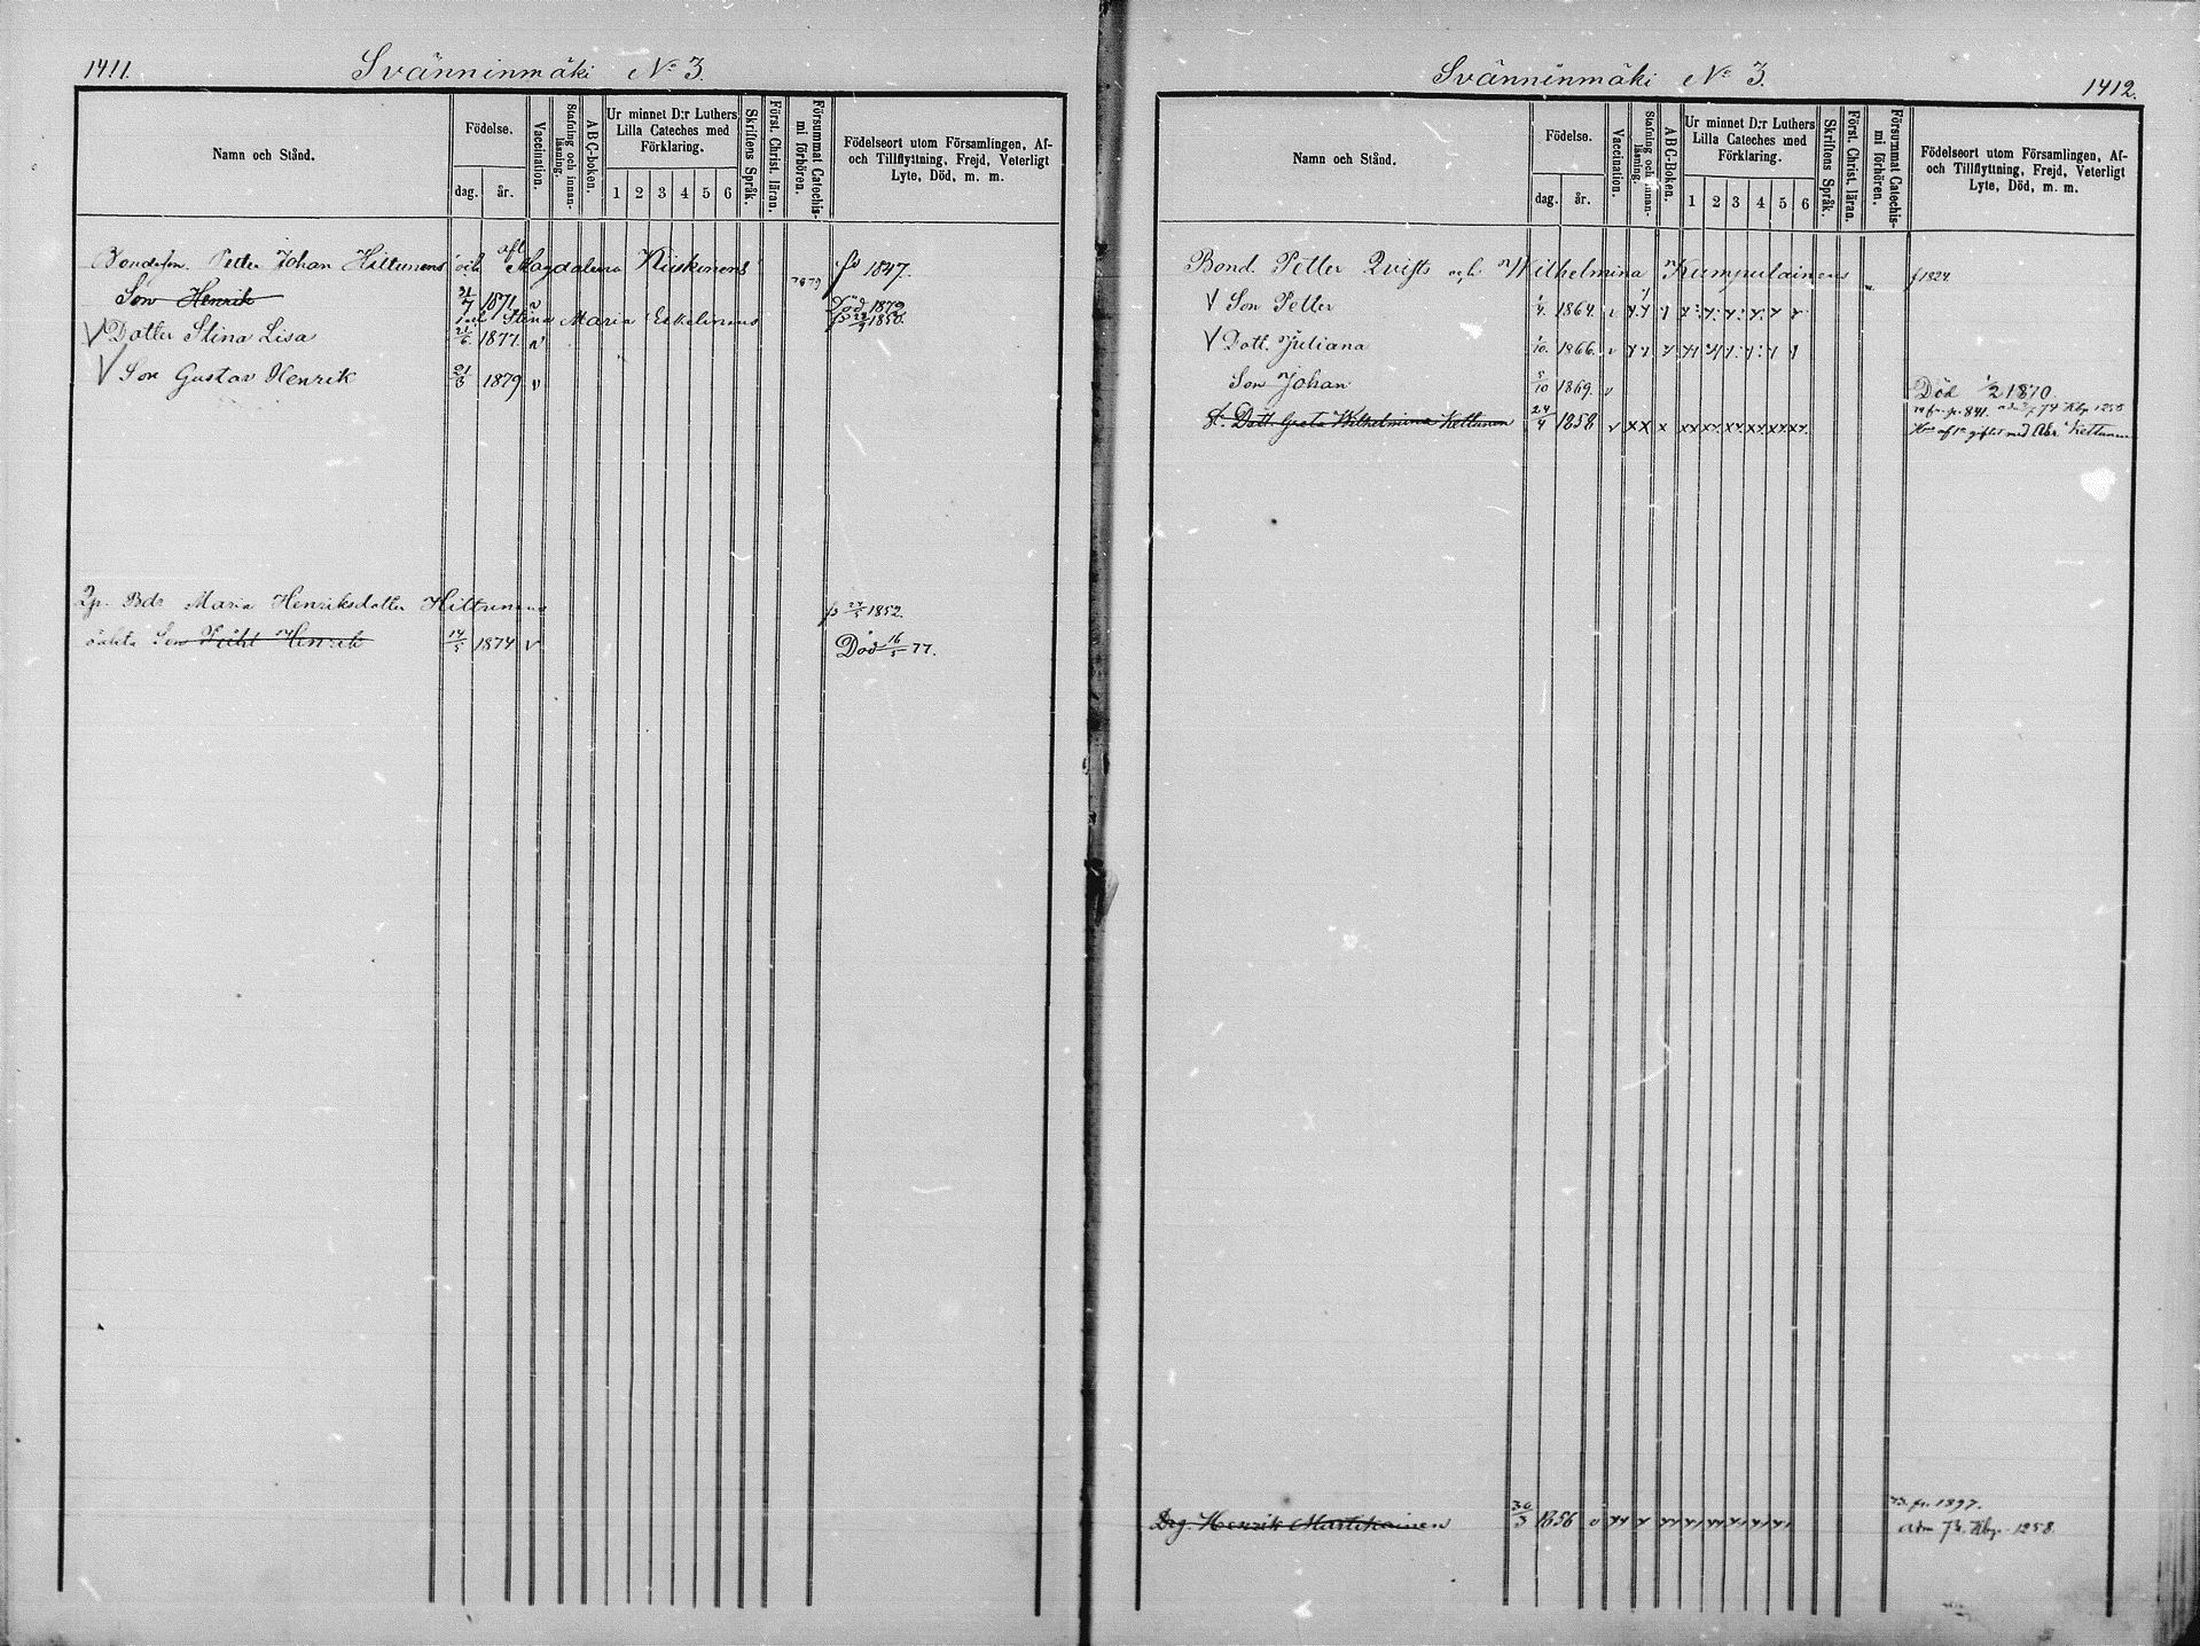 1411. Svänninmäki No 3.
Namn och Stånd. Födelse. dag. år. Vaccination. Stafning och innanläsning. ABC-boken. Ur minnet D:r Luthers Lilla Cateches med Förklaring. 1 2 3 4 5 6 Skriftens Språk. Först. Christ. läran. Försummat Catechismi förhören. Födelseort utom Församlingen, Af- och Tillflyttning, Frejd, Veterligt Lyte, Död, m. m.
Bondeson. Petter Johan Hiltunens och afl Magdalena Kiiskinens 1879 fs 1847.
Son Henrik 31/7 1871 v Död 1872
och Stina Maria Eskelinens 1850.
V Dotter Stina Lisa 21/6 1877. v
V Son Gustav Henrik 21/3 1879 v
Bds Maria Henriksdotter Hiltunens 1852.
oäkta Son Henrik 14/5 1874 v Död 16/5 77.
Svänninmäki No 3. 1412.
Namn och Stånd. Födelse. dag. år. Vaccination. Stafning och innanläsning. ABC-boken. Ur minnet D:r Luthers Lilla Cateches med Förklaring. 1 2 3 4 5 6 Skriftens Språk. Först. Christ. läran. Försummat Catechismi förhören. Födelseort utom Församlingen, Af- och Tillflyttning, Frejd, Veterligt Lyte, Död, m. m.
Bond. Petter Qvists och Wilhelmina Kumpulainens f 1824
V Son Petter 1864. v
V Dott. Juliana 1/10. 1866. v
Son Johan 5/10 1869. v Död 1/2 1870.
fr. p. 841. 74 Kbp 1258
Dott. Greta Wilhelmina Kettunen 24/4 1858 v x x x x x x x x x gift med Abr. Kettunen
Drg. Henrik Martikainen 30/3 1856 v 73. fr. 1397.
adm 78. Kbp. 1258.